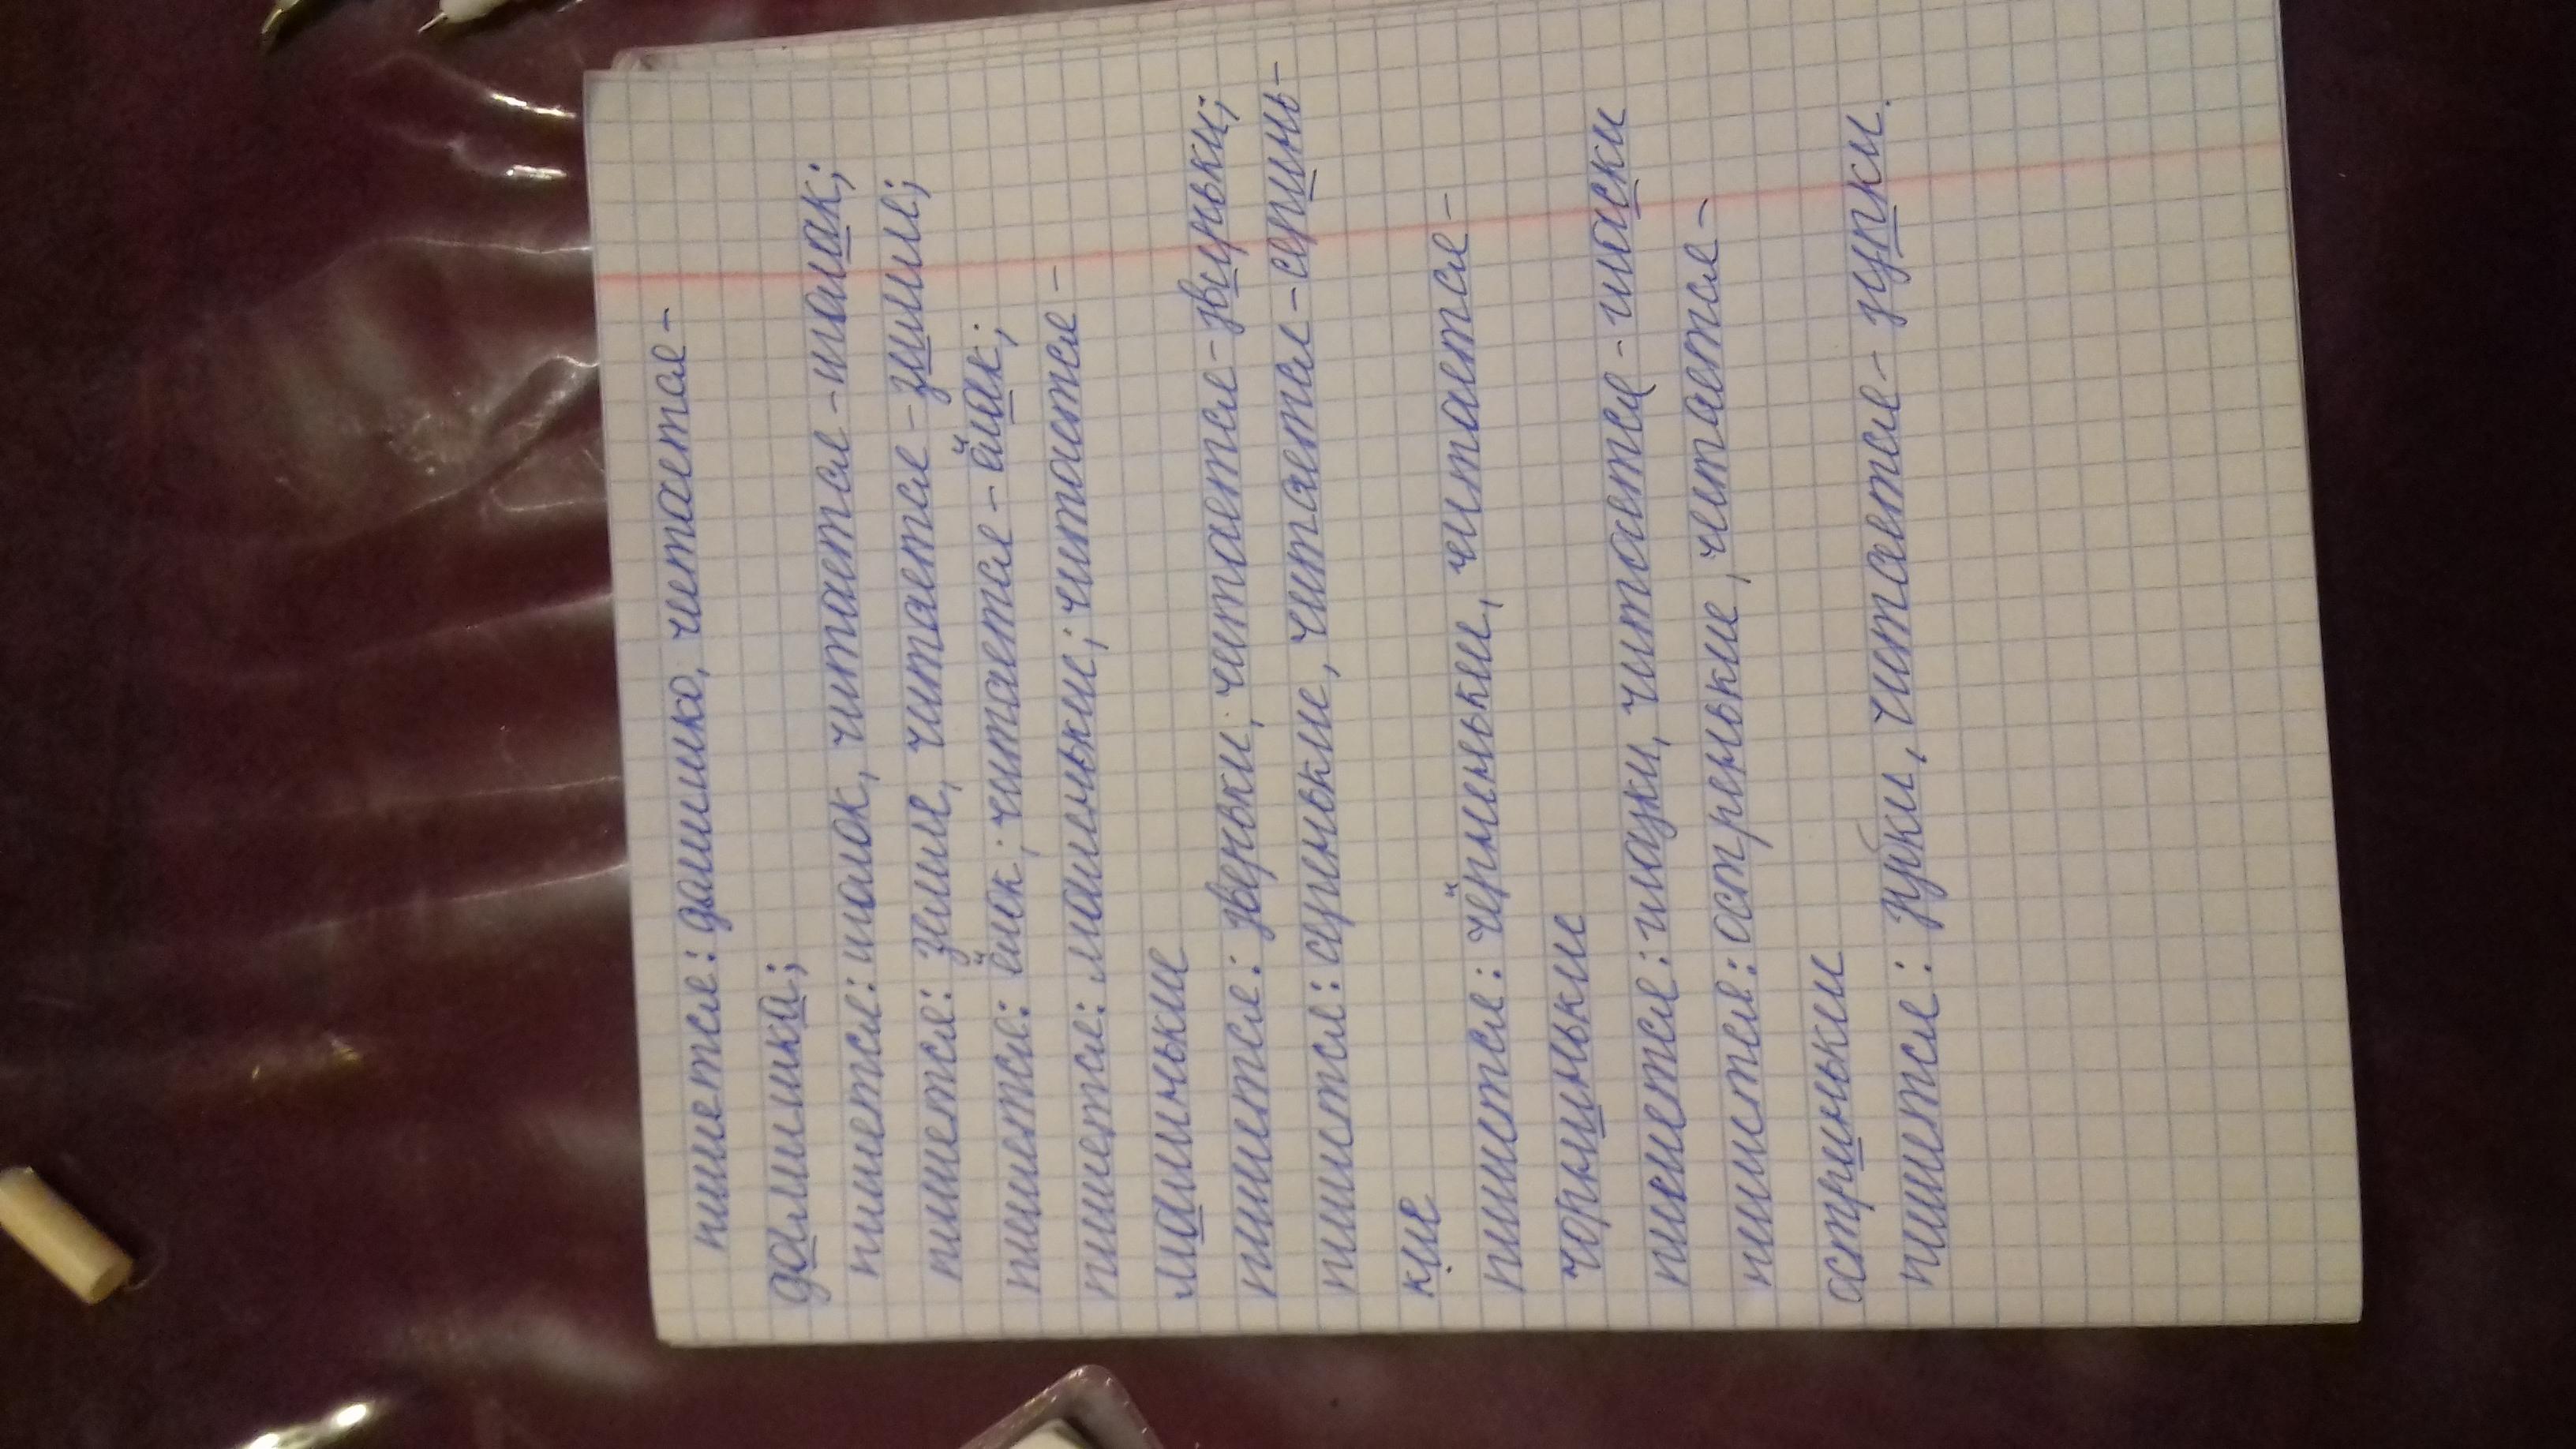 пишется: домишко, читается -
дамишка;
пишется: шалок, читается - шалак;
пишется: земле, читается - зимле;
пишется: ёлок; читается - ёлак;
пишется: маленькие; читается -
малинькие
пишется: зверьки, читается - звирьки;
пишется: серенькие, читается - серинь-
кие
пишется: чёрненькие, читается -
чорнинькие
пишется: глазки, читается - гласки
пишется: остренькие, читается -
астринькии
пишется: зубки, читается - зупки.